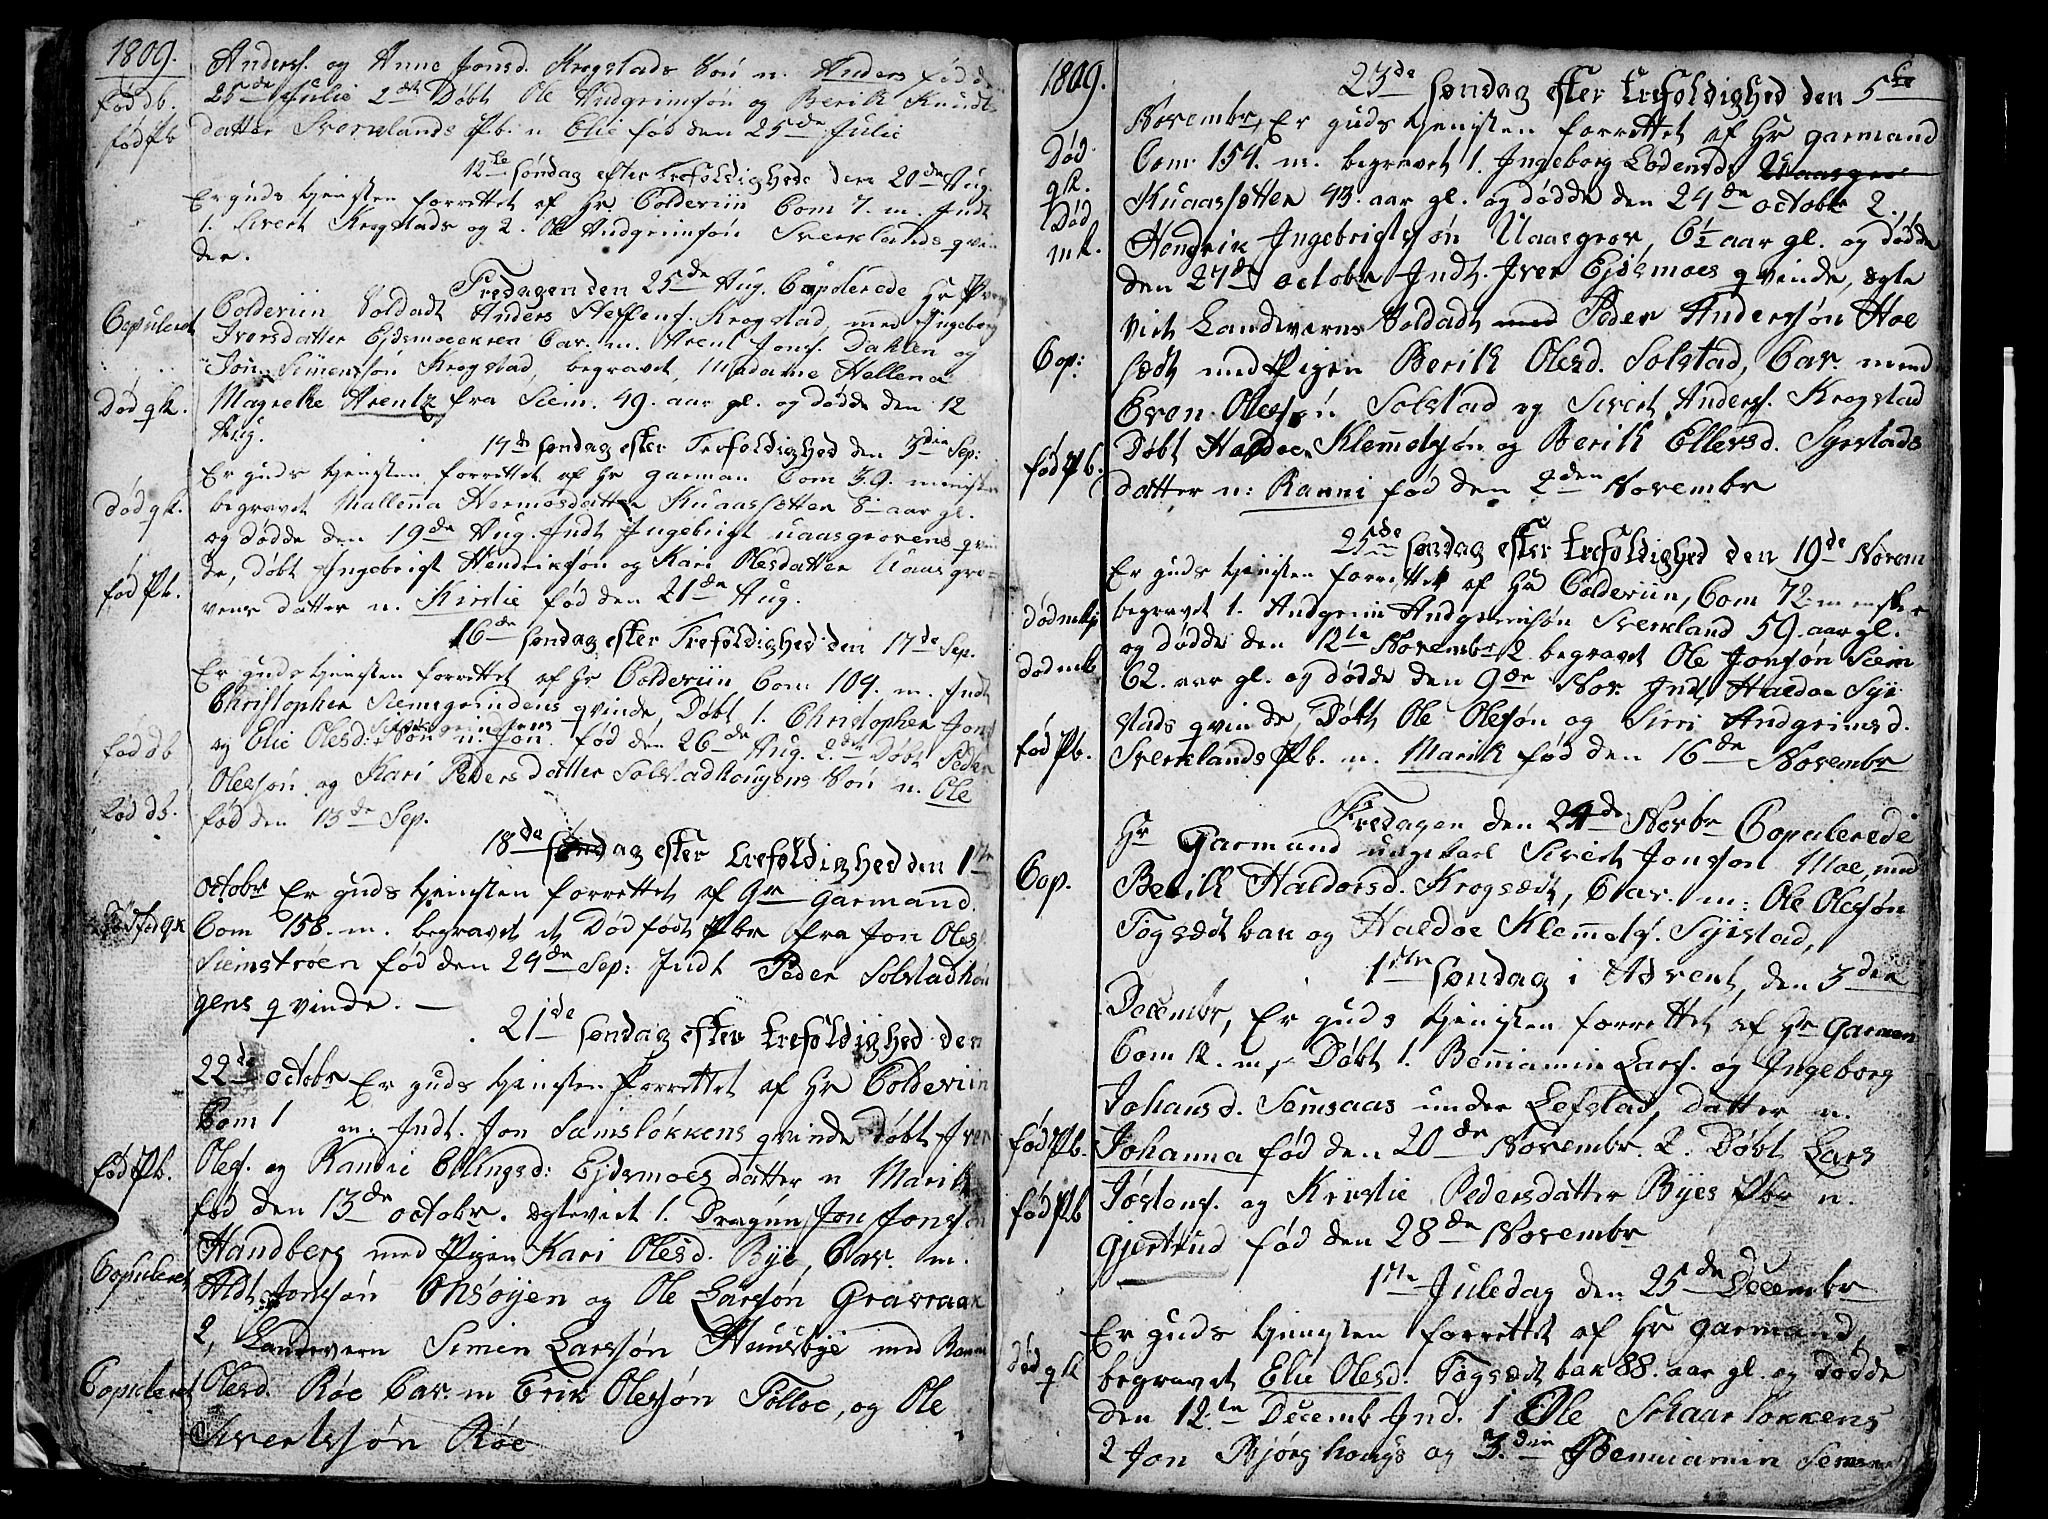 1809.
Anders. og Anne Jonsd. Krogstads Søn n. Anders fød d
fød db. 25de Julie 2det Døbt Ole Andgrimsøn og Berith Knuds
fød Pb datter Sverklands Pb. n. Elie fød den 25de Julie
12te søndag efter Trefoldighed den 20de Aug.
Er guds tjenisten forrettet af Hr. Colderiin Com 7. m. Indt
1. Sivert Krogstads og 2. Ole Andgrimsøn Sverklands qvin
der.
Fredagen den 25de Aug. Copulerede Hr
Copuleret Colderiin Soldadt Anders Steffens. Krogstad, med Ingeborg
Iversdatter Ejdsmoeekren Cav. m. Arent Jons. Dahlen og
Jon Simensøn Krogstad, begravet, Madame Hellena
Død qk. Magrethe Arentz fra Siem. 49. aar gl. og døde den 12
Aug.
14de søndag efter Trefoldighed den 3die Sep:
Er guds tjenisten forrettet af Hr garman Com 39. mennisker
Død qk. begravet Mallenna Hermosdatter Kuaassetter 8. aar gl.
og dødde den 19de Aug. Indt Ingebrigt uaasgrovens qvin
fød Pb. de, døbt Ingebrigt Hendriksøn og Kari Olesdatter Uaasgro-
vens datter n. Kirstie fød den 21de Aug.
16de søndag efter Trefoldighed den 17de Sep.
Er guds tjenisten forrettet af Hr Colderiin Com 104. m. Indt
Christopher Siemsgrindens qvinde, Døbt 1. Christopher Jons
fød db og Elie Olesd: Siemsgrindens Søn n. Jon fød den 26de Aug. 2det Døbt Peder
Olessøn og Kari Pedersdatter Solstadhougens Søn n. Ole
fød db. fød den 13de Sep.
18de søndag efter trefoldighed den 1ste
octobr Er guds tjenisten forrettet af Hr garmand.
Com 158. m. begravet et Død født Pbr fra Jon Oles.
Siemstrøen fød den 24de Sep: Indt Peder Solstadhou
gens qvinde. —
21de søndag efter trefoldighed den
22de octobr Er guds tjenisten forrettet af Hr Colderiin
Com 1 m. Indt. Jon Samsløkkens qvinde døbt Iver
fød Pb. Oles. og Randie Ellingsd: Ejdsmoes datter n Marith
fød den 13de octobr. ægteviet 1. Dragun Jon Jonssøn
Copuleret Handberg med Pigen Kari Olesd. Bye, Cav. m.
Aldt Jonssøn Onsøyen og Ole Larssøn Gravraak
2, Landevern Simen Larssøn Huusbye med Rann
Copuleret Olesd. Røe Cav m Erik Olessøn Tølloe, og Ole
Sivertssøn Røe
1809.
23de søndag efter trefoldighed den 5te
Novembr, Er guds tjenisten forrettet af Hr garmand
Død qk. Com: 154. m. begravet 1. Ingeborg Lodensd.
Kuaassetter 43. aar gl. og dødde den 24de octobr 2.
Død mk. Hendrik Ingebrigtssøn Uaasgrov, 6½ aar gl. og dødde
den 27de octobr Indt. Iver Ejdsmoes qvinde, ægte
viet Landeverns Soldadt med Peder Anderssøn Hoe
Cop: sædt med Pigen Berith Olesd. Solstad, Cav. mend
Even Olessøn Solstad og Sivert Anders. Krogstad
fød Pb. Døbt Haldoe Klemmetsøn og Berith Ellevsd. Syestads
datter n: Ranni fød den 2den Novembr
25de søndag efter trefoldighed den 19de Novem
Er guds tjenisten forrettet af Hr Colderiin, Com 72 mensker
død mk begravet 1. Andgrim Andgrimsøn Sverkland 59. aar gl.
og dødde den 12te Novembr 2 begravet Ole Jonsøn Siem
død mk 62. aar gl. og dødde den 9de Nov Indt, Haldoe Sye
stads qvinde, Døbt Ole Olesøn og Siri Andgrimsd.
fød Pb. Sverklands Pb. n. Marith fød den 16de Novembr
Fredagen den 24de Novbr Copulerede
Hr Garmand ungekarl Sivert Jonssøn Moe, med
Cop. Berith Haldorsd. Krogsædt, Cav. m: Ole Olessøn
Fogsædt bak og Haldoe Klemmets. Syestad,
1ste søndag i Advent, den 3den
Decembr, Er guds tjenisten forrettet af Hr Garman
Com 12. m, Døbt 1. Benniamin Lars. og Ingeborg
Johansd. Semsaas under Lefstad, datter n.
fød Pb. Johanna fød den 20de Novembr. 2. Døbt Lars
fød Pb Jøstens. og Kristie Pedersdatter Byes Pbr n.
gjertrud fød den 28de Novembr
1ste Juledag den 25de Decembr
Er guds tjenisten forrettet af Hr garmand,
død qk begravet Elie Olesd. Fogsædt bak 88. aar gl. og dødde
den 12te Decemb Ind. 1 Ole Skaarløkkens
2 Jon Bjørghougs og 3.die Benniamin